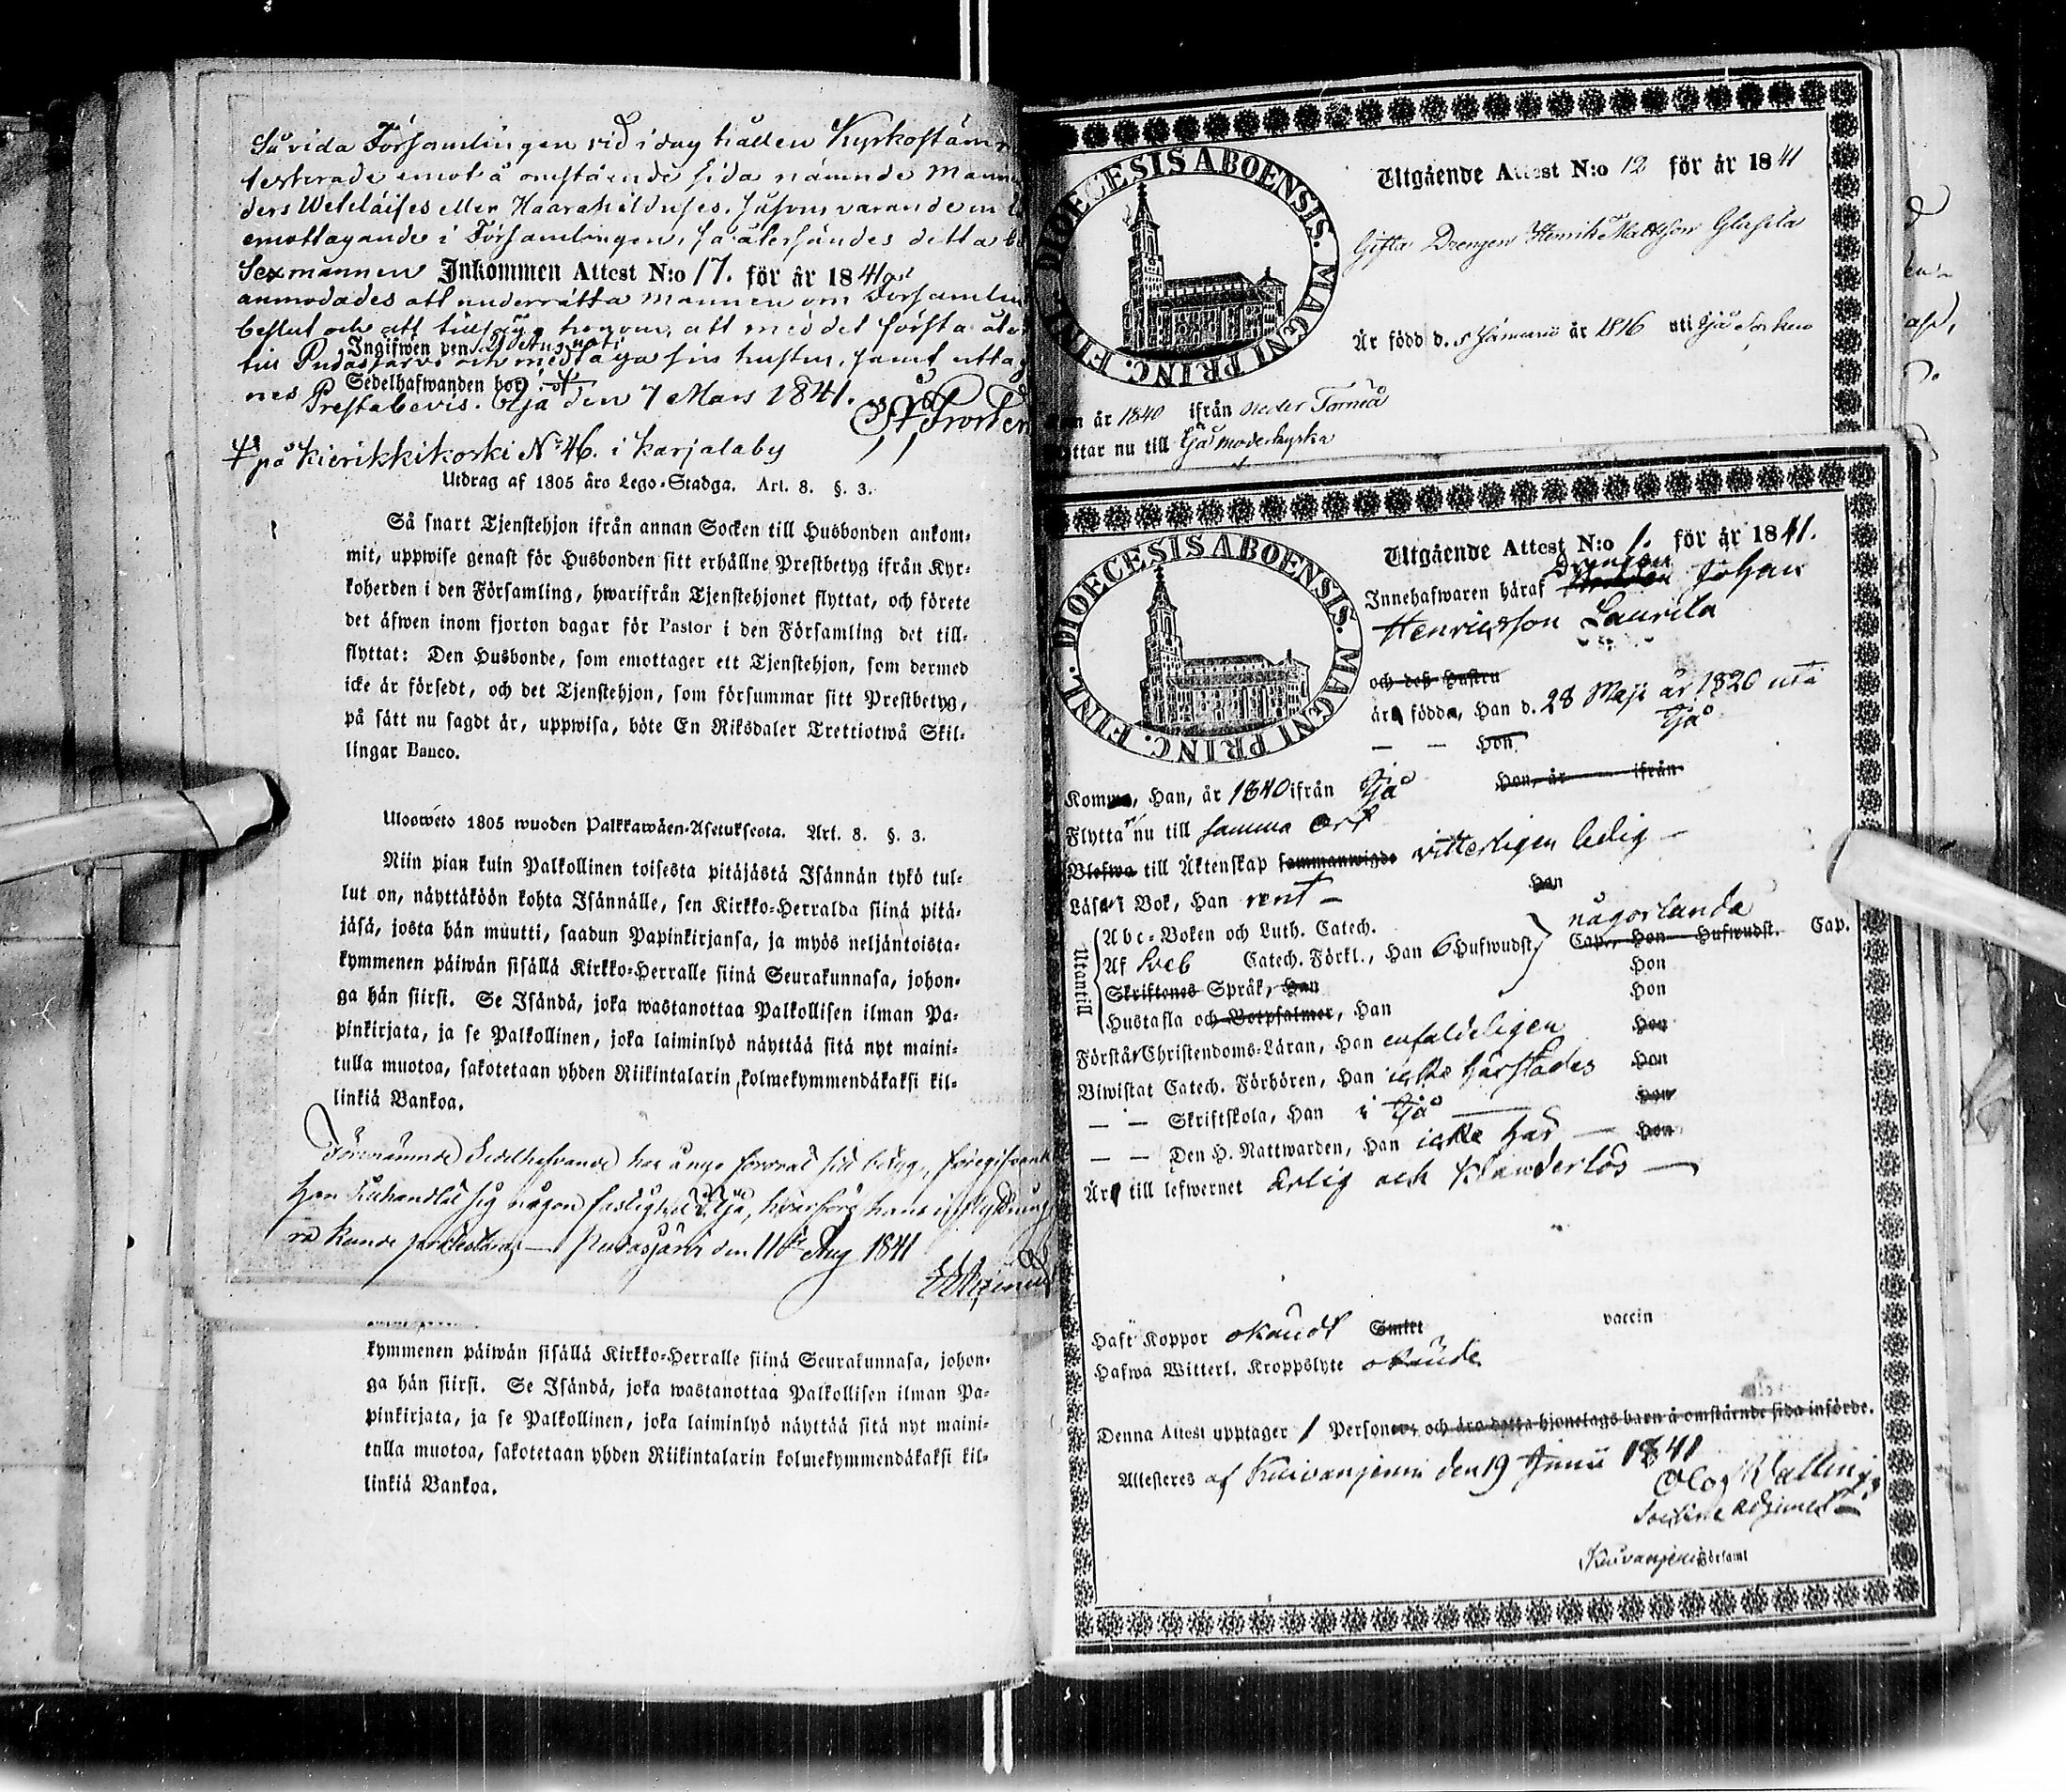 Såvida Församlingen vid i dag hållen Kyrkostäm
testerade emot å omstående sida nämnde Mann
ders eller
emottagande i Församlingen, så återsändes detta
Sexmannen Inkommen Attest N:o 17. för år 1841
anmodades att underrätta Mannen om Församlin
beslut och att tillsäga honom, att med det första åter
Ingifwen den 29 Aug
till Pudasjärvi och medtaga sin hustru, samt uttag
Sedelhafwanden bor
nes Prestabevis. Ijå den 7 Mars 1841.
på Kierikkikoski N:o 46. i Karjalaby
Utdrag af 1805 års Lego-Stadga. Art. 8. §. 3.
Så snart Tjenstehjon ifrån annan Socken till Husbonden ankom-
mit, uppwise genast för Husbonden sitt erhållne Prestbetyg ifrån Kyr-
koherden i den Församling, hwarifrån Tjenstehjonet flyttat, och förete
det äfwen inom fjorton dagar för Pastor i den Församling det till-
flyttat: Den Husbonde, som emottager ett Tjenstehjon, som dermed
icke är försedt, och det Tjenstehjon, som försummar sitt Prestbetyg,
på sätt nu sagdt är, uppwisa, böte En Riksdaler Trettiotwå Skil-
lingar Banco.
Uloswéto 1805 wuoden Palkkawäen-Asetuksesta. Art. 8. §. 3.
Niin pian kuin Palkollinen toisesta pitäjästä Isännän tykö tul-
lut on, näyttäköön kohta Isännälle, sen Kirkko-Herralda siinä pitä-
jäsä, josta hän muutti, saadun Papinkirjansa, ja myös neljäntoista-
kymmenen päiwän sisällä Kirkko-Herralle siinä Seurakunnasa, johon-
ga hän siirsi. Se Isändä, joka wastanottaa Palkollisen ilman Pa-
pinkirjata, ja se Palkollinen, joka laiminlyö näyttää sitä nyt maini-
tulla muotoa, sakotetaan yhden Riikintalarin kolmekymmendäkaksi kil-
linkiä Bankoa.
Förenämnde Sedelhafvande har ånyo
hon sig någon fastighet i Ijå, hvarföre hans
kunde Pudasjärvi den 11te Aug 1841
kymmenen päiwän sisällä Kirkko-Herralle siinä Seurakunnasa, johon-
ga hän siirsi. Se Isändä, joka wastanottaa Palkollisen ilman Pa-
pinkirjata, ja se Palkollinen, joka laiminlyö näyttää sitä nyt maini-
tulla muotoa, sakotetaan yhden Riikintalarin kolmekymmendäkaksi kil-
linkiä Bankoa.
DIOECESIS ABOENSIS. MAGNI PRINC. FINL.
Utgående Attest N:o 12 för år 1841
Gifta Drengen Henrik Mattsson
Är född d. 5 Januarii år 1816 uti Ijå Socken
år 1840 ifrån Neder Torneå
ttar nu till Ijå moderkyrka
DIOECESIS ABOENSIS. MAGNI PRINC. FINL.
Utgående Attest N:o 1. för år 1841.
Innehafwaren häraf Drengen Johan
Henricsson Laurila
och deß Hustru
är födde, Han d. 28 Maji år 1820 uti
Ijå
— — Hon
Komne, Han, år 1840 ifrån Ijå Hon, år ifrån
Flytta nu till samma Ort
Blefwa till Äktenskap sammanwigde vitterligen ledig —
Läsa i Bok, Han rent — Hon
Utantill
Abc-Boken och Luth. Catech. någorlunda
Af Sveb Catech. Förkl., Han 6 Hufwudst. Cap., Hon Hufwudst. Cap.
Skriftenes Språk, Han Hon
Hustafla och Botpsalmer, Han Hon
Förstår Christendoms-Läran, Han enfaldeligen Hon
Biwistat Catech. Förhören, Han icke härstädes Hon
— — Skriftskola, Han i Ijå — Hon
— — Den H. Nattwarden, Han icke här — Hon
Är till lefwernet ärlig och klanderlös —
Haft Koppor okändt Smitt vaccin
Hafwa Witterl. Kroppslyte okände
Denna Attest upptager 1 Personer, och äro detta hjonelags barn å omstående sida införde.
Attesteres af Kuivaniemi den 19 Junii 1841
Olof Walling
Kuivaniemi